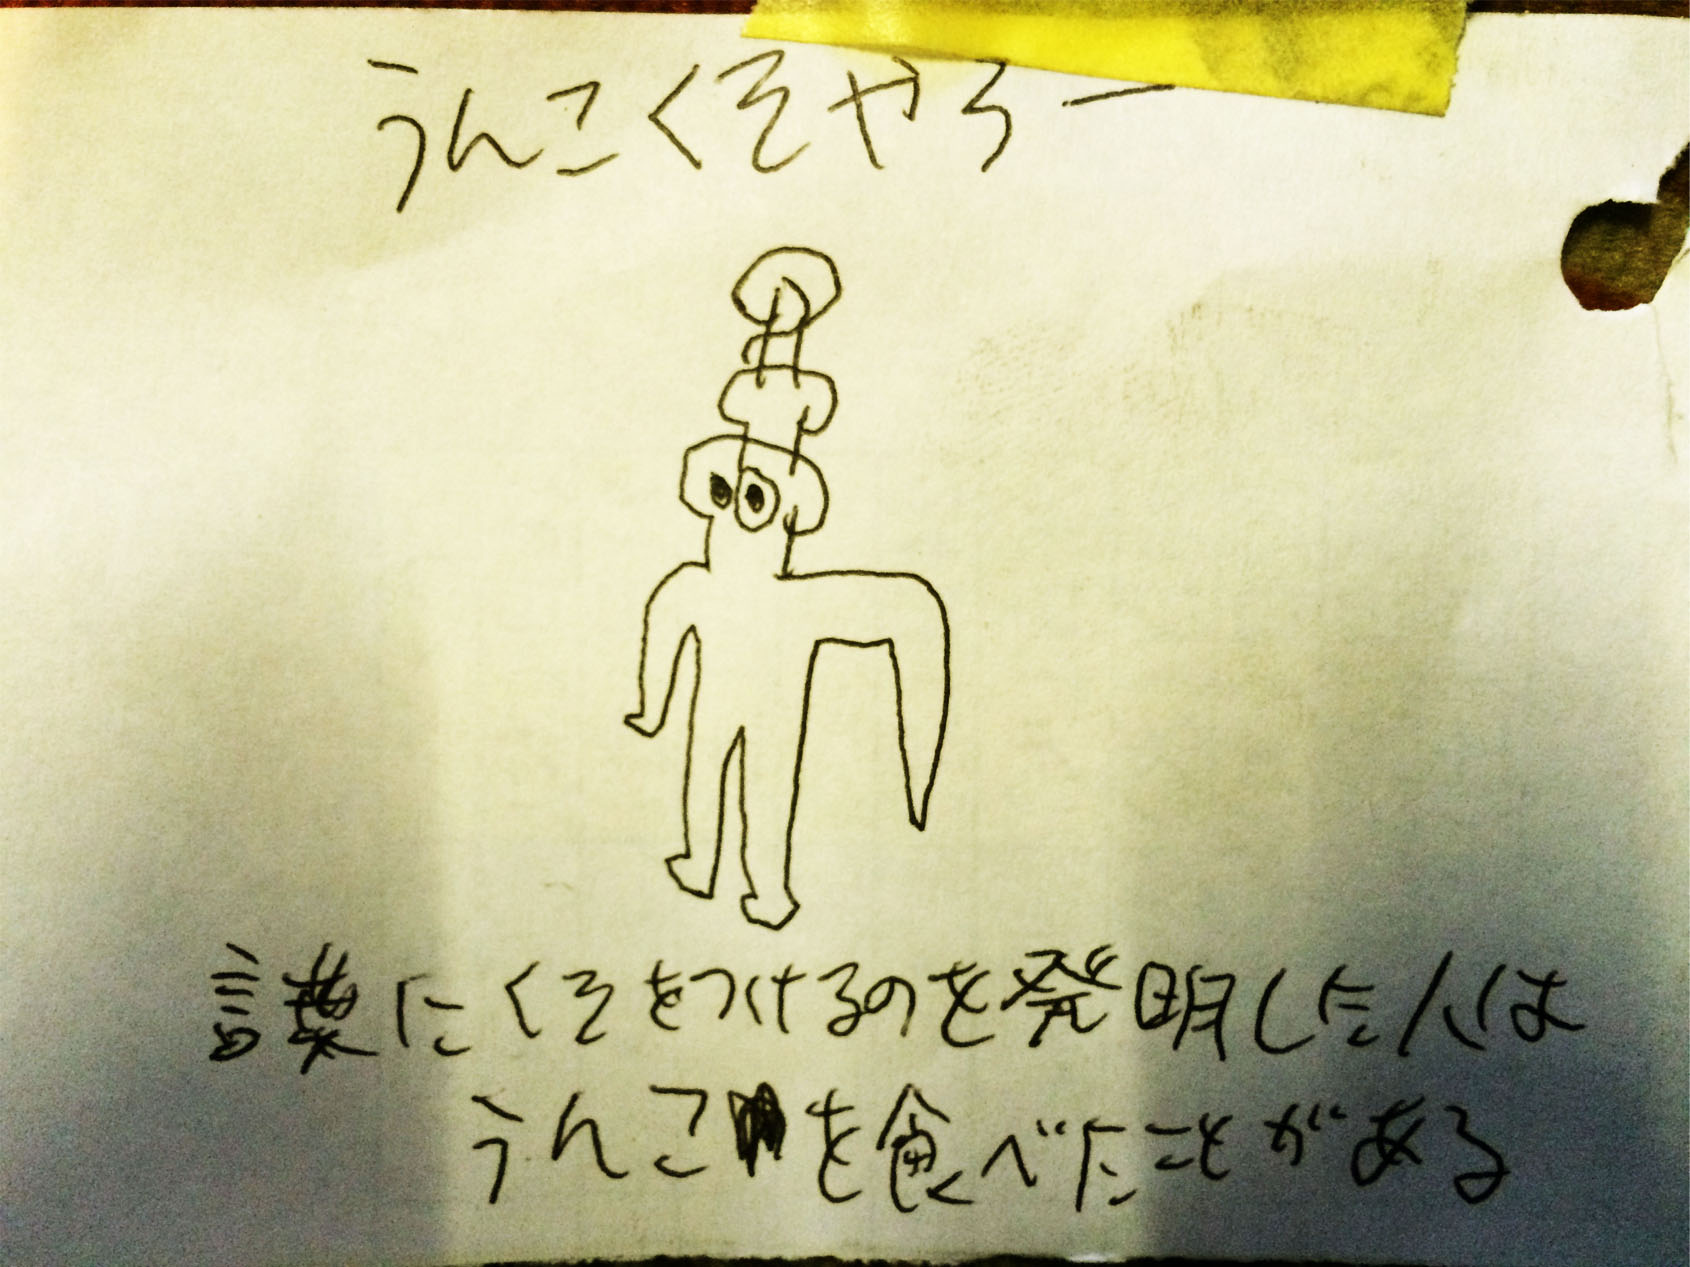 うんこくそやろー
言葉にくそをつけるのを発明した人は
うんこを食べたことがある